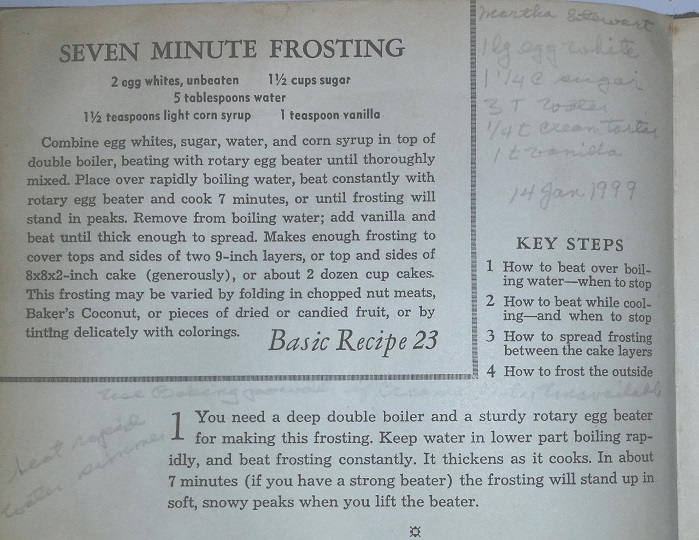 SEVEN MINUTE FROSTING
2 egg whites, unbeaten 1½ cups sugar
5 tablespoons water
1½ teaspoons light corn syrup 1 teaspoon vanilla
Combine egg whites, sugar, water, and corn syrup in top of
double boiler, beating with rotary egg beater until thoroughly
mixed. Place over rapidly boiling water, beat constantly with
rotary egg beater and cook 7 minutes, or until frosting will
stand in peaks. Remove from boiling water; add vanilla and
beat until thick enough to spread. Makes enough frosting to
cover tops and sides of two 9-inch layers, or top and sides of
8x8x2-inch cake (generously), or about 2 dozen cup cakes.
This frosting may be varied by folding in chopped nut meats,
Baker's Coconut, or pieces of dried or candied fruit, or by
tinting delicately with colorings.
Basic Recipe 23
Martha Stewart
1 lg egg white
1 1/4 C sugar
3 T water
1/4 t cream tartar
1 t vanilla
14 Jan 1999
KEY STEPS
1 How to beat over boil-
ing water—when to stop
2 How to beat while cool-
ing—and when to stop
3 How to spread frosting
between the cake layers
4 How to frost the outside
use Baking powder if Cream unavailable
beat rapid
water simmer
1 You need a deep double boiler and a sturdy rotary egg beater
for making this frosting. Keep water in lower part boiling rap-
idly, and beat frosting constantly. It thickens as it cooks. In about
7 minutes (if you have a strong beater) the frosting will stand up in
soft, snowy peaks when you lift the beater.